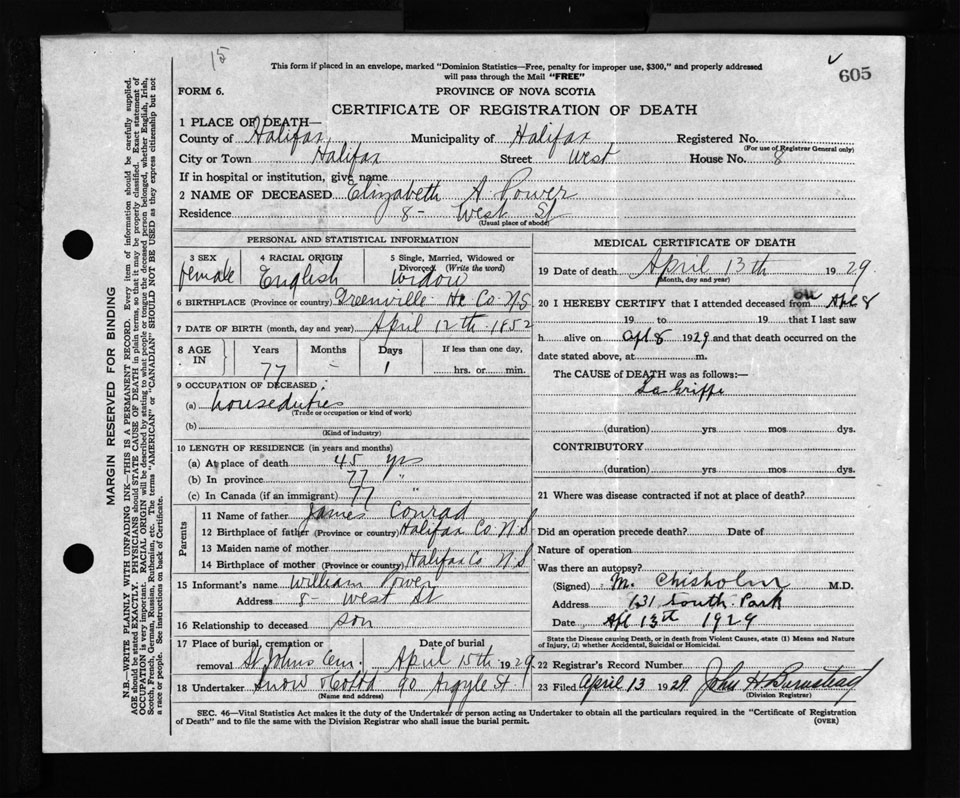 15
This form if placed in an envelope, marked "Dominion Statistics—Free, penalty for improper use, $300," and properly addressed
will pass through the Mail "FREE"
605
FORM 6.
PROVINCE OF NOVA SCOTIA
CERTIFICATE OF REGISTRATION OF DEATH
1 PLACE OF DEATH—
County of Halifax Municipality of Halifax Registered No.
(For use of Registrar General only)
City or Town Halifax Street West House No. 8
If in hospital or institution, give name
2 NAME OF DECEASED Elizabeth A. Power
Residence 8- West St
(Usual place of abode)
PERSONAL AND STATISTICAL INFORMATION
3 SEX 4 RACIAL ORIGIN 5 Single, Married, Widowed or
Divorced (Write the word)
female English Widow
6 BIRTHPLACE (Province or country) Greenville Hx Co. N.S
7 DATE OF BIRTH (month, day and year) April 12th. 1852
8 AGE IN Years Months Days If less than one day,
77 - 1 hrs. or min.
9 OCCUPATION OF DECEASED:
(a) houseduties
(Trade or occupation or kind of work)
(b)
(Kind of industry)
10 LENGTH OF RESIDENCE (in years and months)
(a) At place of death 45 yrs
(b) In province 77 "
(c) In Canada (if an immigrant) 77 "
Parents
11 Name of father James Conrad
12 Birthplace of father (Province or country) Halifax Co. N.S
13 Maiden name of mother
14 Birthplace of mother (Province or country) Halifax Co N.S
15 Informant's name William Power
Address 8- West St
16 Relationship to deceased son
17 Place of burial, cremation or Date of burial
removal St Johns Cem. April 15th 1929
18 Undertaker Snow & Co Ltd 90 Argyle St
(Name and address)
MEDICAL CERTIFICATE OF DEATH
19 Date of death April 13th 1929.
(Month, day and year)
20 I HEREBY CERTIFY that I attended deceased from on Apl 8
19 to 19 that I last saw
h alive on Apl. 8 1929 and that death occurred on the
date stated above, at m.
The CAUSE of DEATH was as follows:—
La Grippe
(duration) yrs mos dys.
CONTRIBUTORY
(duration) yrs mos dys.
21 Where was disease contracted if not at place of death?
Did an operation precede death? Date of
Nature of operation
Was there an autopsy?
(Signed) M. Chisholm M.D.
Address 631 South Park
Date Apl 13th 1929
State the Disease causing Death, or in death from Violent Causes, state (1) Means and Nature
of Injury, (2) whether Accidental, Suicidal or Homicidal.
22 Registrar's Record Number
23 Filed April 13 1929 John H Barnstead
(Division Registrar)
SEC. 46—Vital Statistics Act makes it the duty of the Undertaker or person acting as Undertaker to obtain all the particulars required in the "Certificate of Registration
of Death" and to file the same with the Division Registrar who shall issue the burial permit.
(OVER)
MARGIN RESERVED FOR BINDING
N.B.—WRITE PLAINLY WITH UNFADING INK—THIS IS A PERMANENT RECORD. Every item of information should be carefully supplied.
AGE should be stated EXACTLY. PHYSICIANS should STATE CAUSE OF DEATH in plain terms, so that it may be properly classified. Exact statement of
OCCUPATION is very important. RACIAL ORIGIN will be described by stating to what people or tongue the deceased person belonged, whether English, Irish,
Scotch, French, German, Russian, Ruthenian, etc. The terms "AMERICAN" or "CANADIAN" SHOULD NOT BE USED as they express citizenship but not
a race or people. See instructions on back of Certificate.